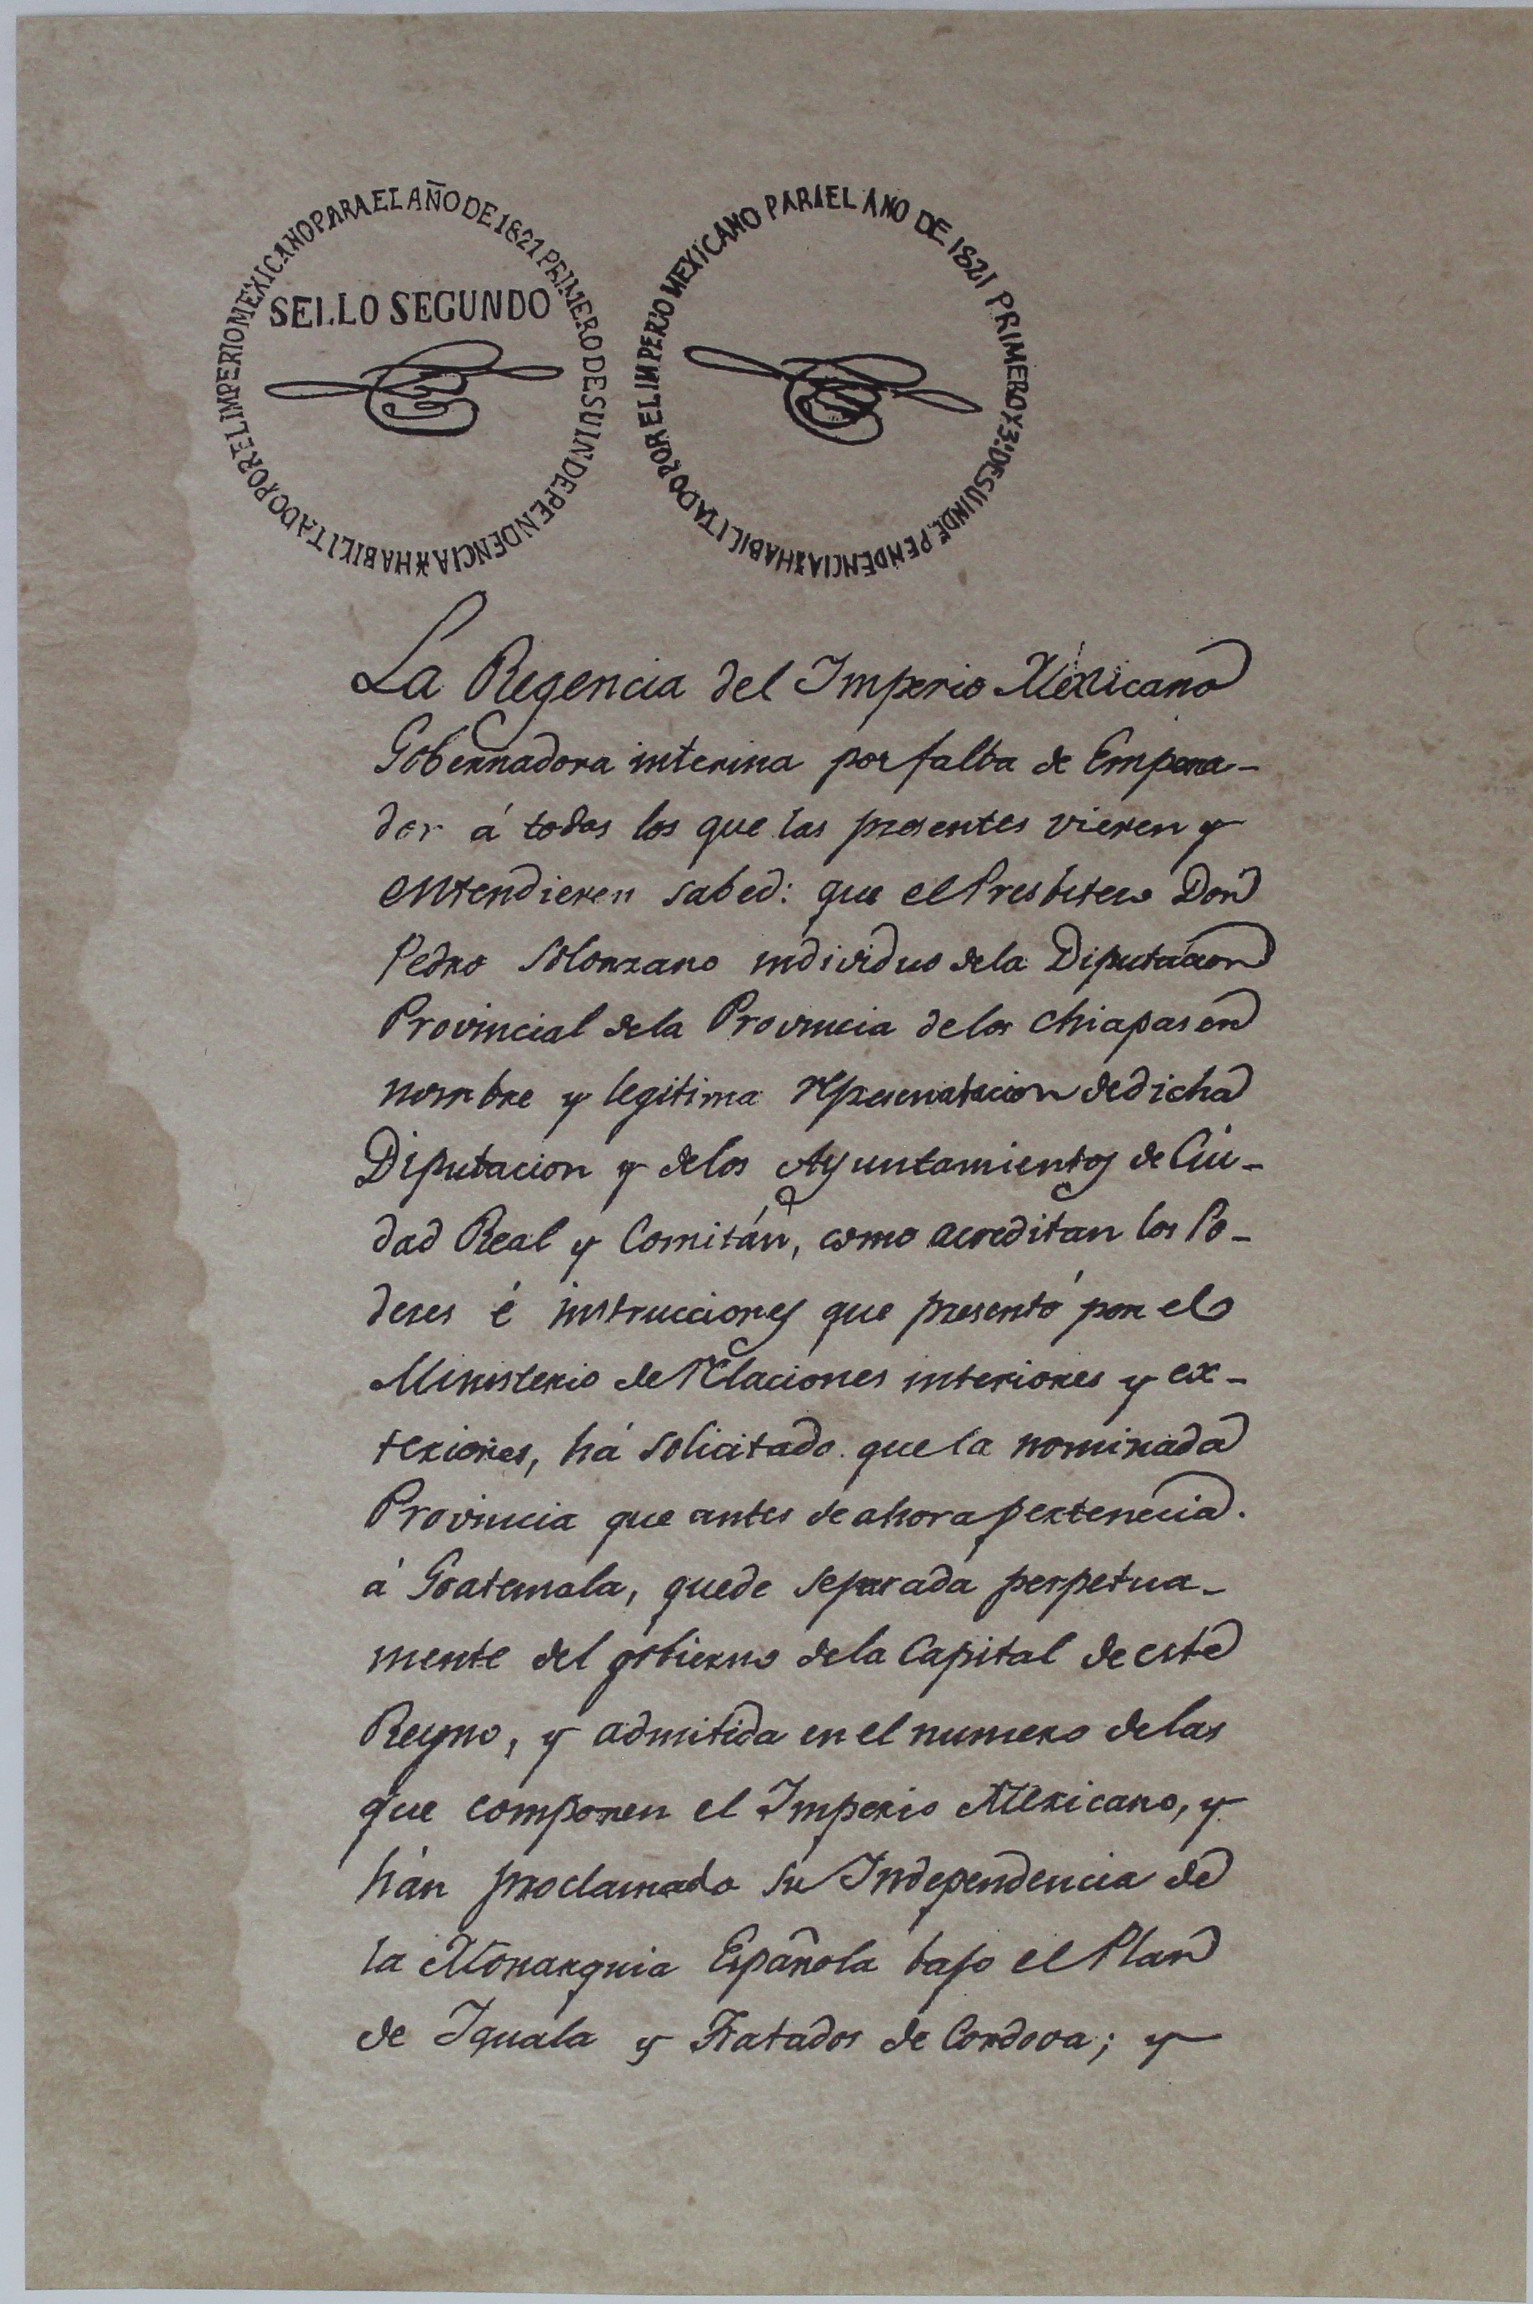 HABILITADO POR EL IMPERIO MEXICANO PARA EL AÑO DE 1821 PRIMERO DE SU INDEPENDENCIA
SELLO SEGUNDO
HABILITADO POR EL IMPERIO MEXICANO PARA EL ANO DE 1821 PRIMERO Y 3º DE SU INDEPENDENCIA
La Regencia del Imperio Mexicano
Gobernadora interina por falta de Empera-
dor á todos los que las presentes vieren y
entendieren sabed: que el Presbitero Don
Pedro Solorzano individuo de la Diputacion
Provincial de la Provincia de los Chiapas en
nombre y legitima representacion de dicha
Diputacion y de los Ayuntamientos de Ciu-
dad Real y Comitán, como acreditan los Po-
deres é instrucciones que presentó por el
Ministerio de relaciones interiores y ex-
teriores, há solicitado que la nominada
Provincia que antes de ahora pertenecia.
á Goatemala, quede separada perpetua-
mente del gobierno de la Capital de este
Reyno, y admitida en el numero de las
que componen el Imperio Mexicano, y
hán proclamado su Independencia de
la Monarquia Española bajo el Plan
de Iguala y Tratados de Cordova; y